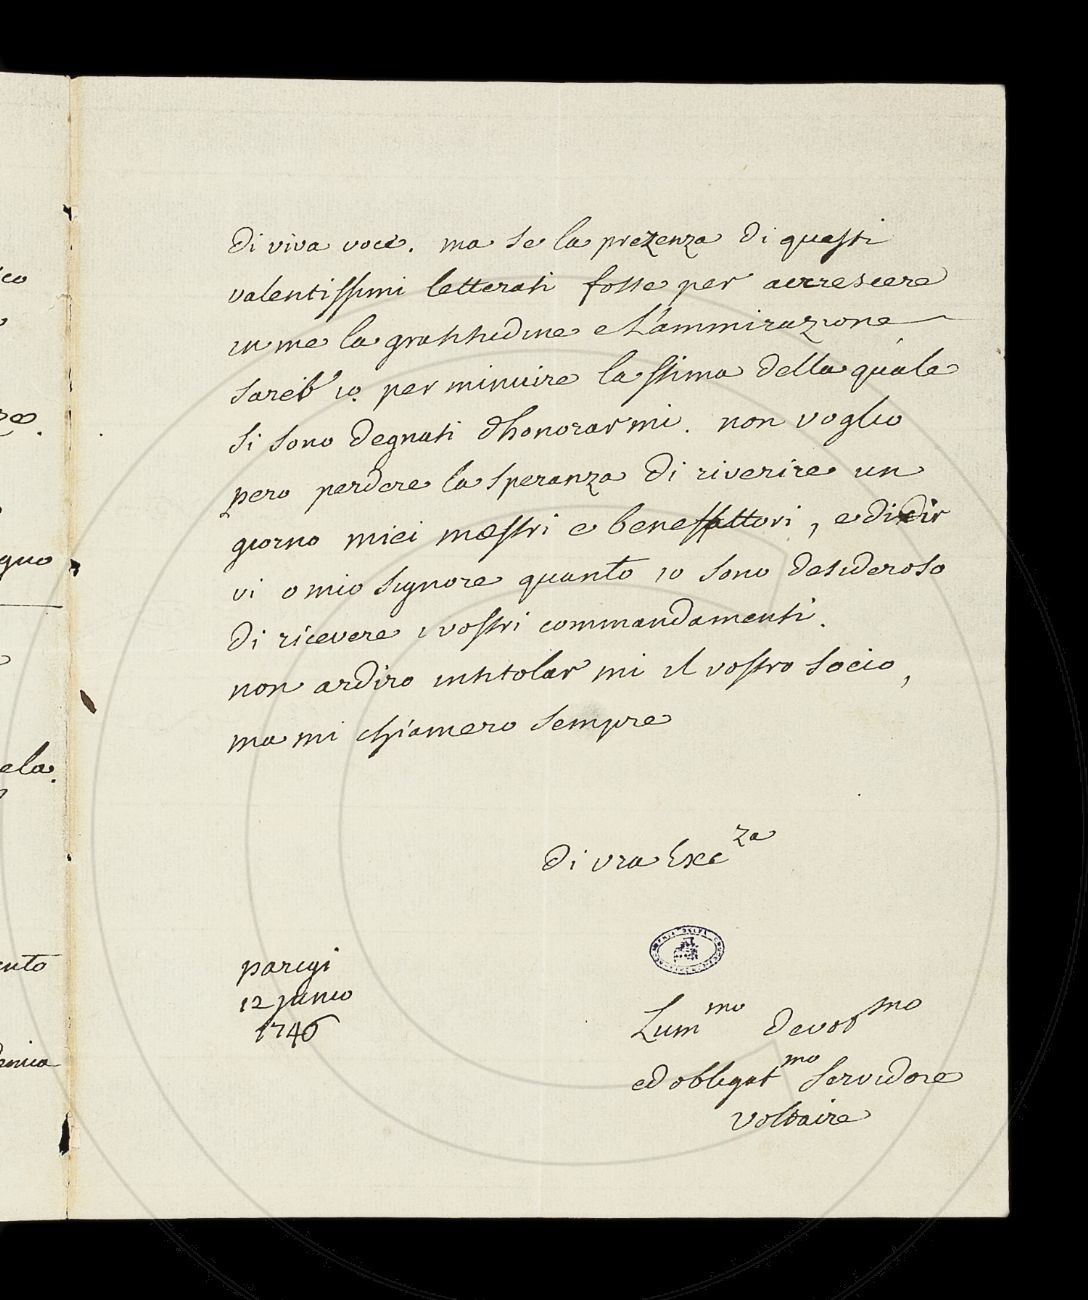 di viva voce. ma se la prezenza di questi
valentissimi letterati fosse per accrescere
in me la gratitudine e L'ammirazione
sareb' io per minuire la stima della quale
si sono degnati dhonorarmi. non voglio
pero perdere la speranza di riverire un
giorno miei mæstri e benefattori, e di dir
vi o mio signore quanto io sono desideroso
di ricevere i vostri commandamenti.
non ardiro intitolar mi il vostro socio,
ma mi chiamero sempre
di vra Excza
parigi
12 junio
1746
Lummo devotmo
ed obligatmo servidore
Voltaire
gno
ela.
ento